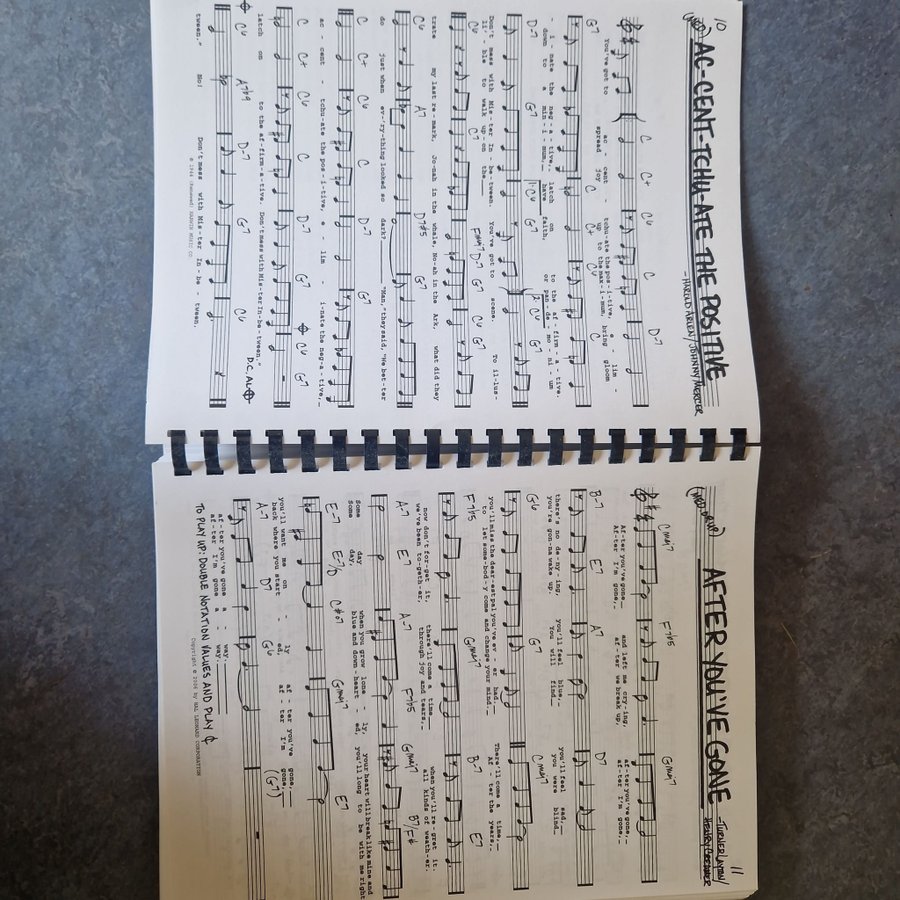 10
(MED.) AC-CENT-TCHU-ATE THE POSITIVE
-HAROLD ARLEN/JOHNNY MERCER
C C+ C6 C D-7
You've got to ac - cent - tchu-ate the pos - i - tive, e - lim -
spread joy up to the max - i - mum, bring gloom
G7 C C+ C6 C
- i - nate the neg - a - tive, latch on to the af - firm - a - tive.
down to a min - i - mum, have faith, or pan - de - mo - ni - um
D-7 G7 1. C6 G7 2. C6 G7
Don't mess with Mis - ter In - be - tween. You've got to scene. To il - lus-
li' - ble to walk up - on the
C6 C7 F#maj7 D-7 G7 C6 G7
trate my last re - mark, Jo - nah in the whale, No - ah in the Ark, what did they
C6 A7 D7#5 G7
do just when ev - 'ry - thing looked so dark? "Man," they said, "We bet - ter
C C+ C6 C D-7 G7
ac - cent - tchu-ate the pos - i - tive, e - lim - i - nate the neg - a - tive,
C C+ C6 C D-7 G7 C6 G7
latch on to the af - firm - a - tive. Don't mess with Mis - ter In - be - tween."
D.C. AL
C6 A7b9 D-7 G7 C6
tween." No! Don't mess with Mis - ter In - be - tween.
© 1944 (Renewed) HARWIN MUSIC CO.
11
(MED. OR UP) AFTER YOU'VE GONE
-TURNER LAYTON/
HENRY CREAMER
Cmaj7 F7b5 Gmaj7
Af - ter you've gone and left me cry - ing, af - ter you've gone,
Af - ter I'm gone, af - ter we break up, af - ter I'm gone,
B-7 E7 A7 D7
there's no de - ny - ing, you'll feel blue, you'll feel sad,
you're gon - na wake up. You will find you were blind
G6 G7 Cmaj7
you'll miss the dear - est pal you've ev - er had. There'll come a time,
to let some - bod - y come and change your mind. Af - ter the years,
F7b5 Gmaj7 B-7 E7
now don't for - get it, there'll come a time when you'll re - gret it.
we've been to - geth - er, through joy and tears, all kinds of weath - er.
A-7 E7 A-7 F7b5 Gmaj7 B7/F#
Some day when you grow lone - ly, your heart will break like mine and
Some day, blue and down - heart - ed, you'll long to be with me right
E-7 E-7/D C#ø7 Gmaj7 E7
you'll want me on - ly af - ter you've gone,
back where you start - ed, af - ter I'm gone,
A-7 D7 G6 (G7)
af - ter you've gone a - way.
af - ter I'm gone a - way.
TO PLAY UP: DOUBLE NOTATION VALUES AND PLAY ¢
Copyright © 2006 by HAL LEONARD CORPORATION